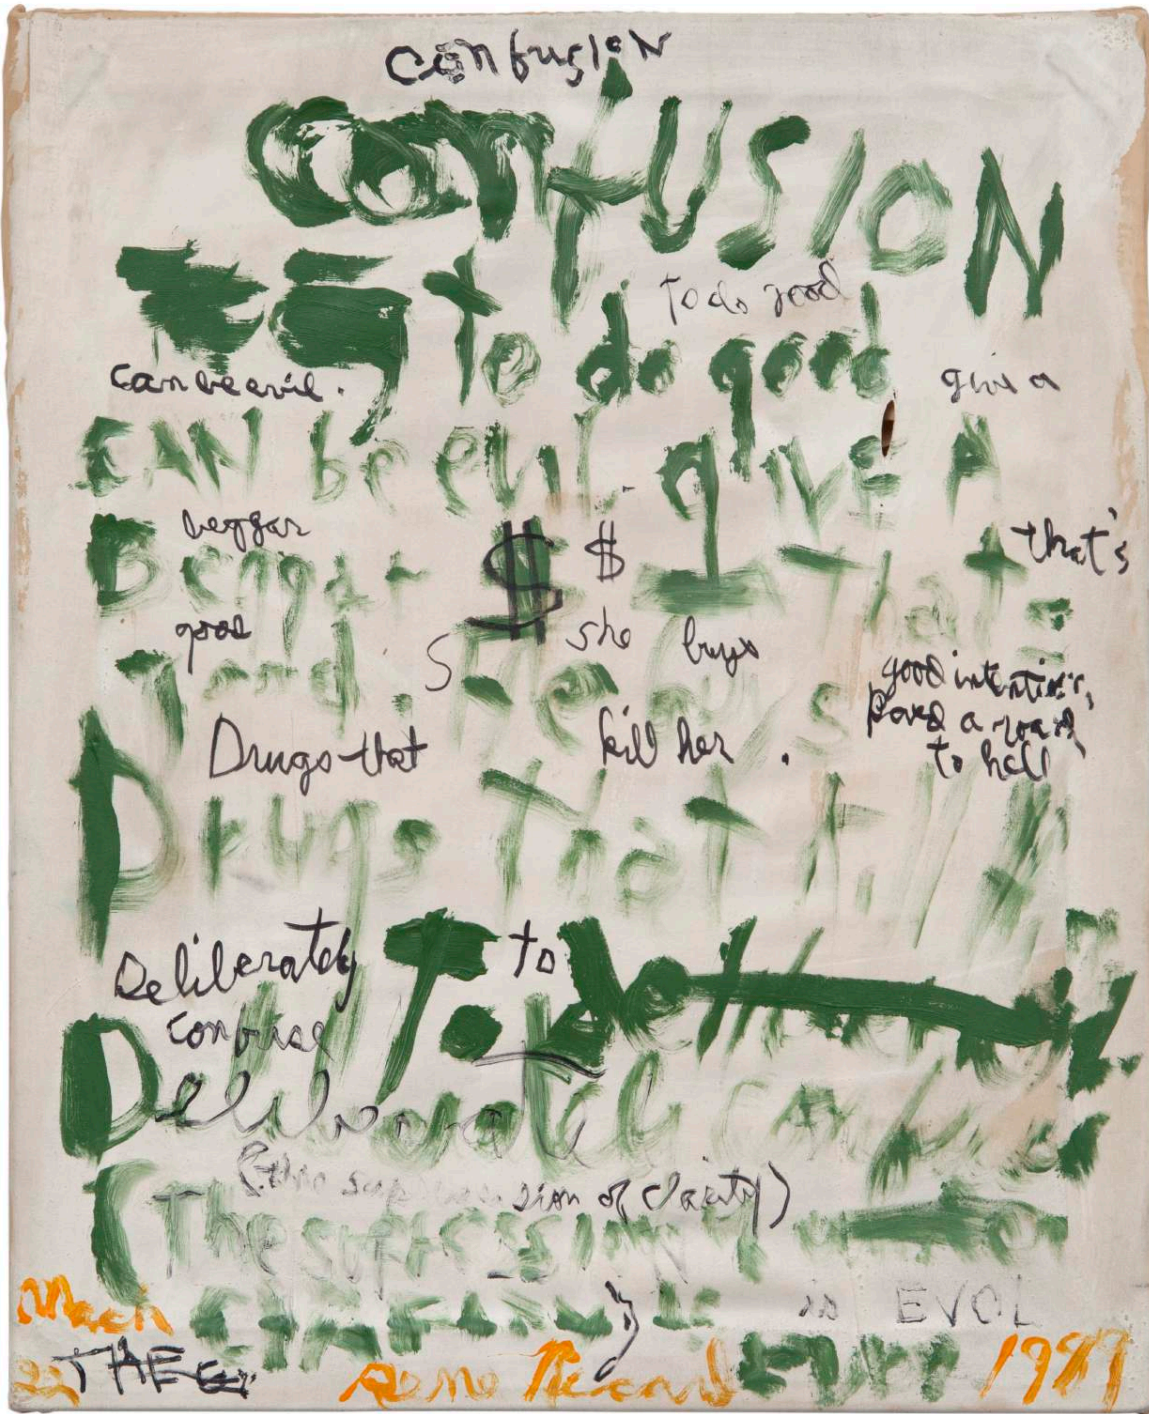 confusion
CONFUSION
to do good
to do good
can be evil. give a
CAN be evil. give A
beggar $ $ that's
Beggar $ 1 - That's
good she buys
good. She buys
good intentions,
paved a road
to hell
Drugs that kill her.
Drugs that kill
Deliberately to
confuse
To
Deliberately confuse
(the suppression of clarity)
(The suppression of
clarity) is
is EVOL
March
22 THE 1987